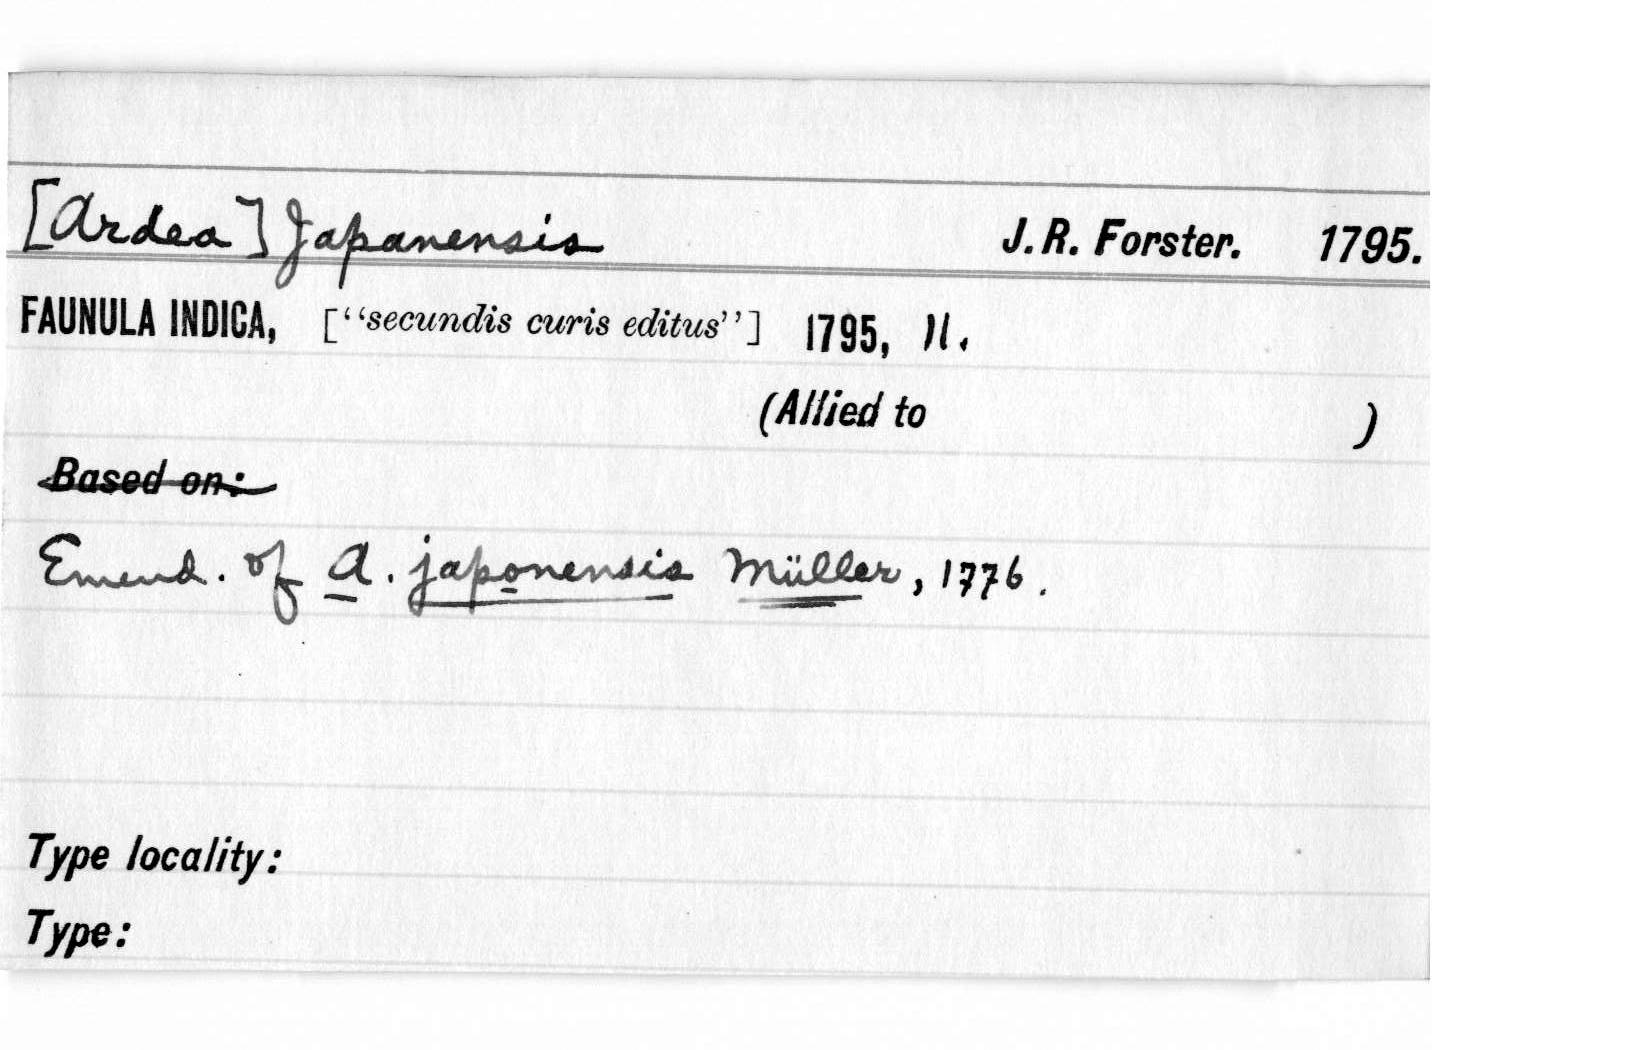 [Ardea] Japanensis J. R. Forster. 1795.
FAUNULA INDICA, [“secundis curis editus”] 1795, 11.
(Allied to )
Based on:
Emend. of A. japonensis Müller, 1776.
Type locality:
Type: